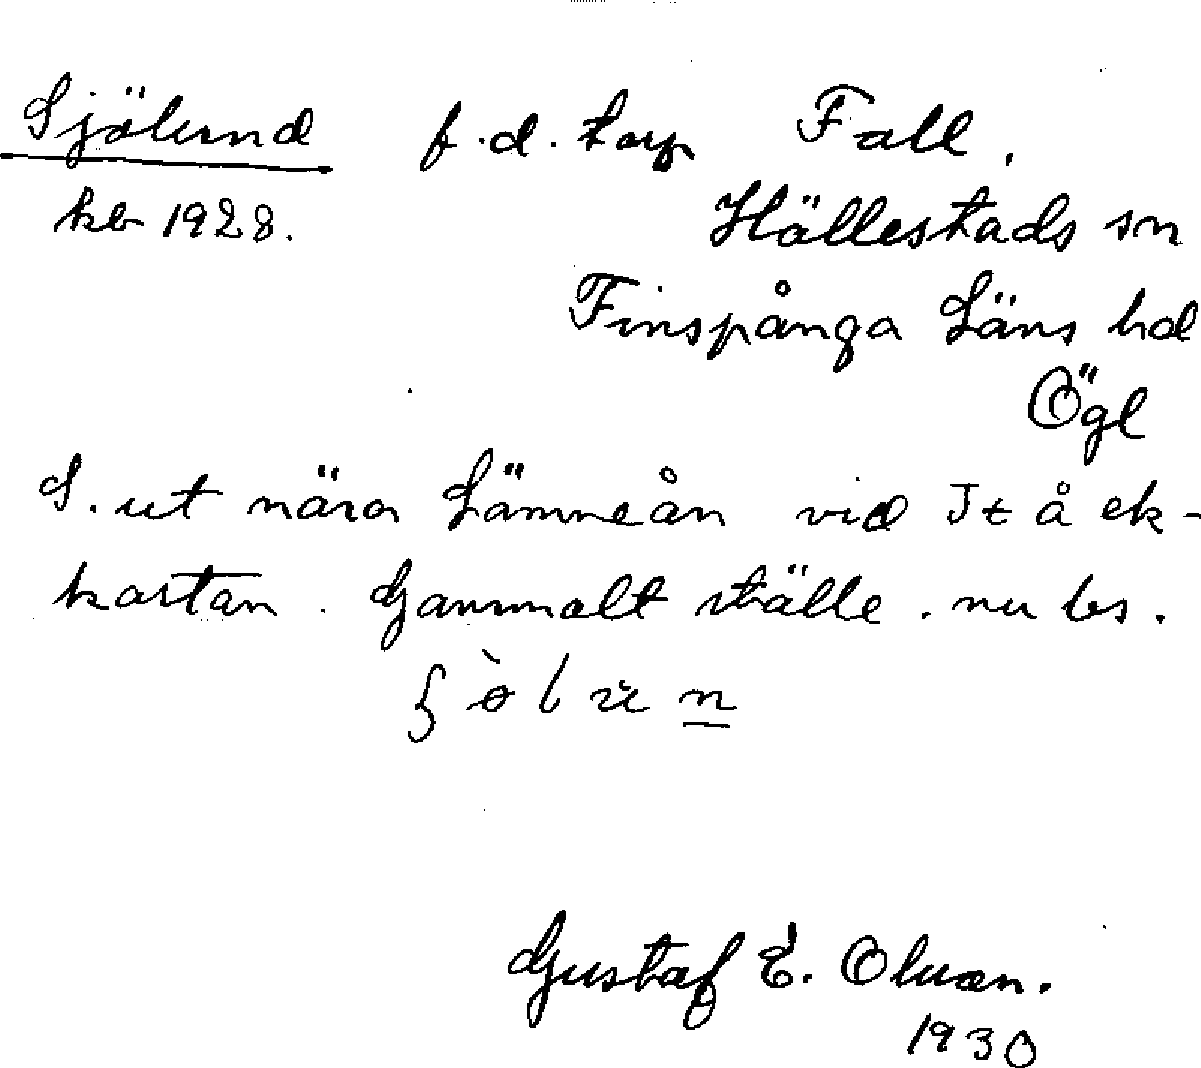 Sjölund f.d. torp Fall,
kb 1928. Hällestads sn
Finspånga Läns hd
Ögl
S. ut nära Lämneån vid It å ek-
kartan. Gammalt ställe. nu bs.
Gustaf E. Olsson.
1930